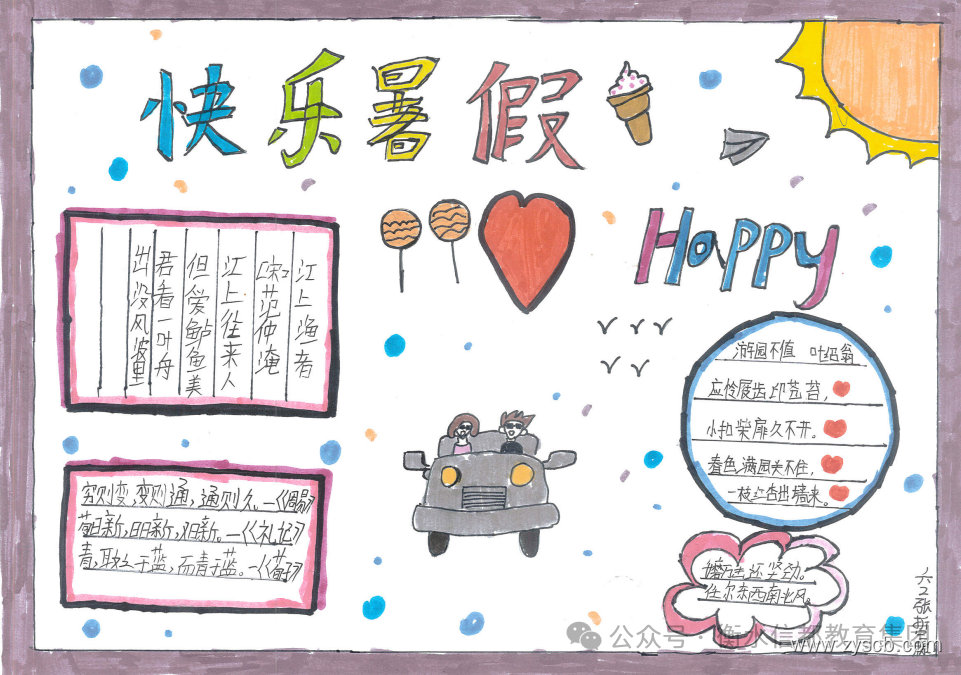 快乐暑假
Happy
江上渔者
[宋]范仲淹
江上往来人
但爱鲈鱼美
君看一叶舟
出没风波里
游园不值 叶绍翁
应怜屐齿印苍苔,
小扣柴扉久不开。
春色满园关不住,
一枝红杏出墙来。
穷则变,变则通,通则久。—《周易》
苟日新,日日新,又日新。—《礼记》
青,取之于蓝,而青于蓝。—《荀子》
磨还坚劲。
任尔东西南北风。
六2张
公众号·衡水信都教育集团
www.zyscb.com